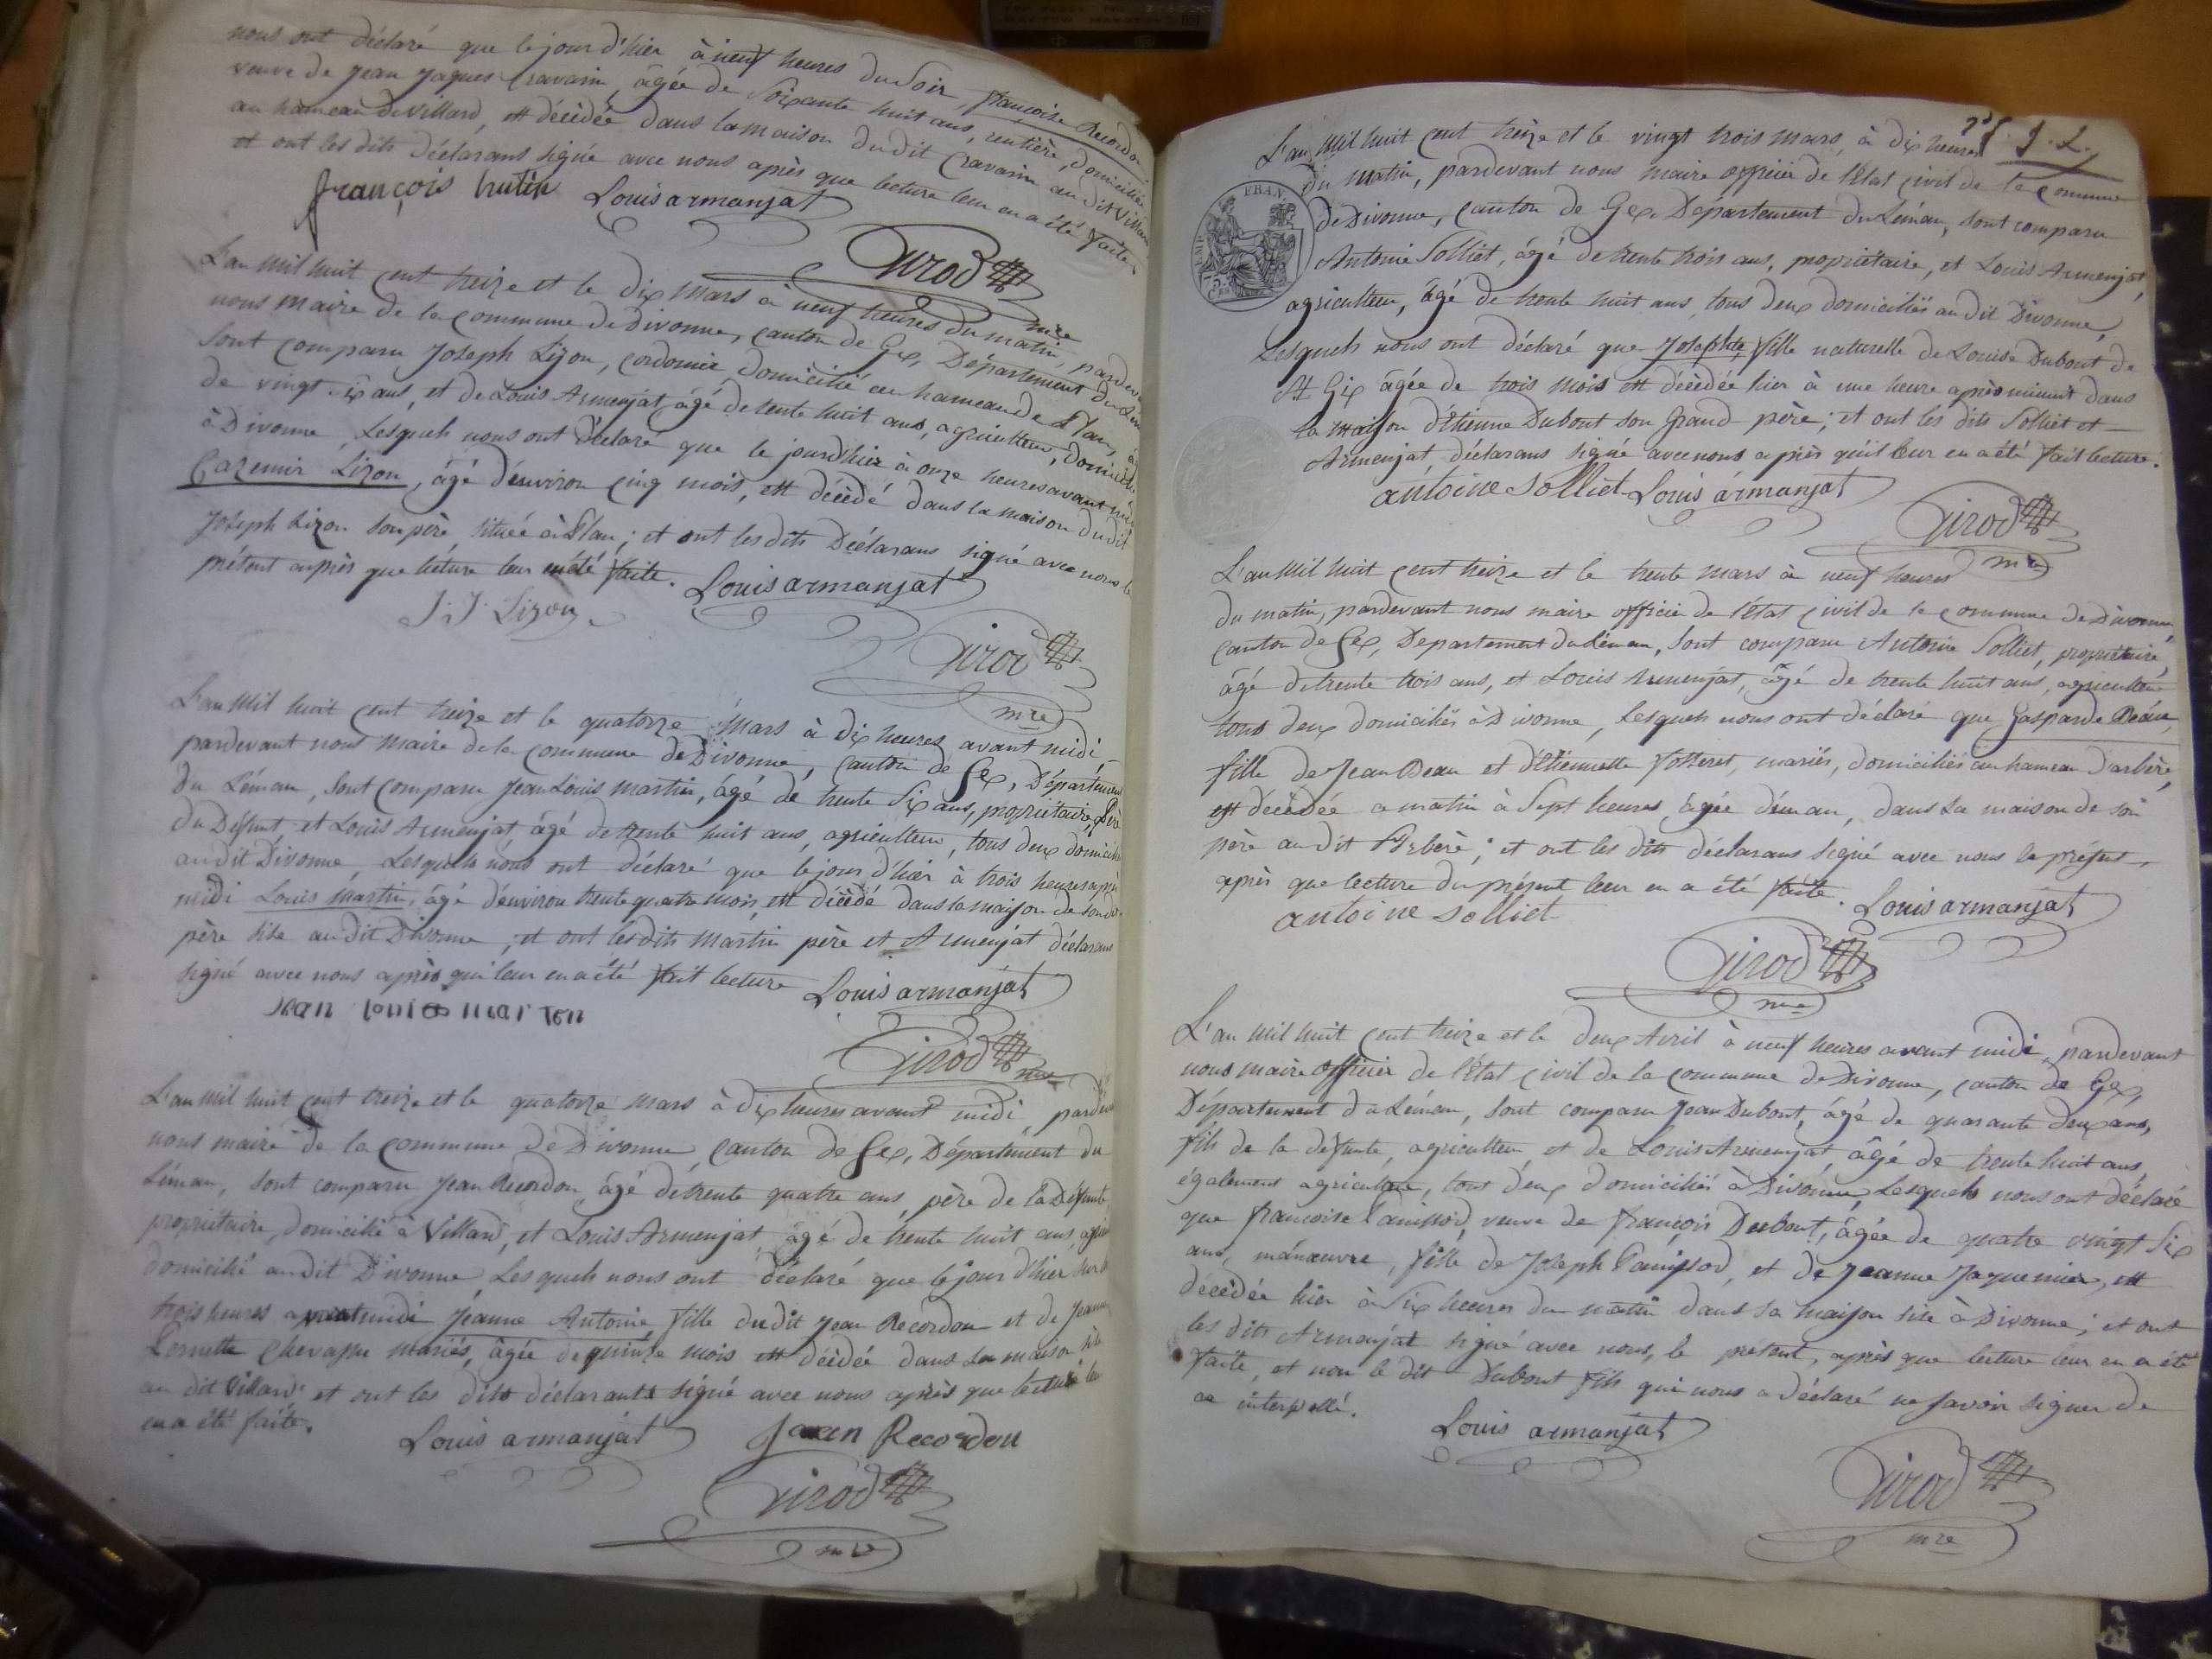 nous ont déclaré que le jour d'hier à neuf heures du soir, françoise Recordon
veuve de Jean Jaques Cravarin, âgée de soixante huit ans, rentière, domiciliée
au hameau de Villard, est décédée dans la maison du dit Cravarin au dit Villard
et ont les dits déclarans signé avec nous après que lecture leur en a été faite
françois hutin Louis armanjat
Girod
mre
L'an mil huit cent treize et le dix mars à neuf heures du matin, pardev
nous maire de la commune de Divonne, canton de Gex, Département du Lém
sont comparu Joseph Lizon, cordonnier domicilié au hameau de Plan, â
de vingt six ans, et de Louis Armenjat âgé de trente huit ans, agriculteur, domicilié
à Divonne, Lesquels nous ont déclaré que le jourd'hier à onze heures avant mi
Cazemir Lizon, âgé d'environ cinq mois, est décédé dans la maison du dit
Joseph Lizon son père située à Plan; et ont les dits Déclarans signé avec nous le
présent après que lecture leur en été faite. Louis armanjat
J. J. Lizon
Girod
mre
L'an mil huit cent treize et le quatorze mars à dix heures avant midi,
pardevant nous maire de la commune de Divonne, canton de Gex, Département
du Léman, sont comparu Jean Louis martin, âgé de trente six ans, propriétaire, Père
du Défunt, et Louis Armenjat, âgé de trente huit ans, agriculteur, tous deux domicilié
au dit Divonne, Lesquels nous ont déclaré que le jour d'hier à trois heures après
midi Louis martin, âgé d'environ trente quatre mois, est décédé dans la maison de son dit
père sise au dit Divonne, et ont les dits Martin père et Armenjat déclarans
signé avec nous après qui leur en a été fait lecture Louis armanjat
jean louis martin
Girod
mre
L'an mil huit cent treize et le quatorze mars à dix heures avant midi, pardev
nous maire de la commune de Divonne, canton de Gex, Département du
Léman, sont comparu Jean Recordon, âgé de trente quatre ans, père de la Défunte
propriétaire, domicilié à Villard, et Louis Armenjat, âgé de trente huit ans, agri
domicilié au dit Divonne, Lesquels nous ont déclaré que le jour d'hier sur les
trois heures après midi Jeanne Antoine fille du dit Jean Recordon et de Jeanne
Pernette Chevassu mariés, âgée de quinze mois est décédée dans sa maison sise
au dit Villard et ont les dits déclarants signé avec nous après que lecture leur
en a été faite.
Louis armanjat Jean Recordon
Girod
mre
7e f. J. L.
L'an mil huit cent treize et le vingt trois mars, à dix heures
du matin, pardevant nous maire officier de l'état civil de la commune
de Divonne, canton de Gex Département du Léman, sont comparu
Antoine Solliet, âgé de trente trois ans, propriétaire, et Louis Armenjat,
agriculteur, âgé de trente huit ans, tous deux domiciliés au dit Divonne,
Lesquels nous ont déclaré que Josephte, fille naturelle de Louise Dubout de
St Gix âgée de trois mois est décédée hier à une heure après minuit dans
la maison d'Etienne Dubout son grand père; et ont les dits Solliet et
Armenjat, déclarans signé avec nous après qu'il leur en a été fait lecture.
antoine Solliet Louis armanjat
Girod
mre
FRAN.
75
L'an mil huit cent treize et le trente mars à neuf heures
du matin, pardevant nous maire officier de l'état civil de la commune de Divonne,
canton de Gex, Département du Léman, sont comparu Antoine Solliet, propriétaire,
âgé de trente trois ans, et Louis Armenjat, âgé de trente huit ans, agriculteur
tous deux domiciliés à Divonne, Lesquels nous ont déclaré que Gasparde Déau,
fille de Jean Déau et d'Etiennette Jotteret, mariés, domiciliés au hameau d'arbère,
est décédée ce matin à sept heures, âgée d'un an, dans la maison de son
père au dit Arbère; et ont les dits déclarans signé avec nous le présent,
après que lecture du présent leur en a été faite. Louis armanjat
antoine solliet
Girod
mre
L'an mil huit cent treize et le deux Avril à neuf heures avant midi, pardevant
nous maire officier de l'état civil de la commune de Divonne, canton de Gex,
Département du Léman, sont comparu Jean Dubout, âgé de quarante deux ans,
fils de la défunte, agriculteur, et de Louis Armenjat, âgé de trente huit ans,
également agriculteur, tout deux domiciliés à Divonne, Lesquels nous ont déclaré
que françoise Panissod, veuve de françois Dubout, âgée de quatre vingt six
ans, manœuvre, fille de Joseph Panissod, et de Jeanne Jaquemier, est
décédée hier à six heures du matin dans sa maison sise à Divonne; et ont
les dits Armenjat signé avec nous, le présent, après que lecture leur en a été
faite, et non le dit Dubout fils qui nous a déclaré ne savoir signer de
ce interpellé.
Louis armanjat
Girod
mre